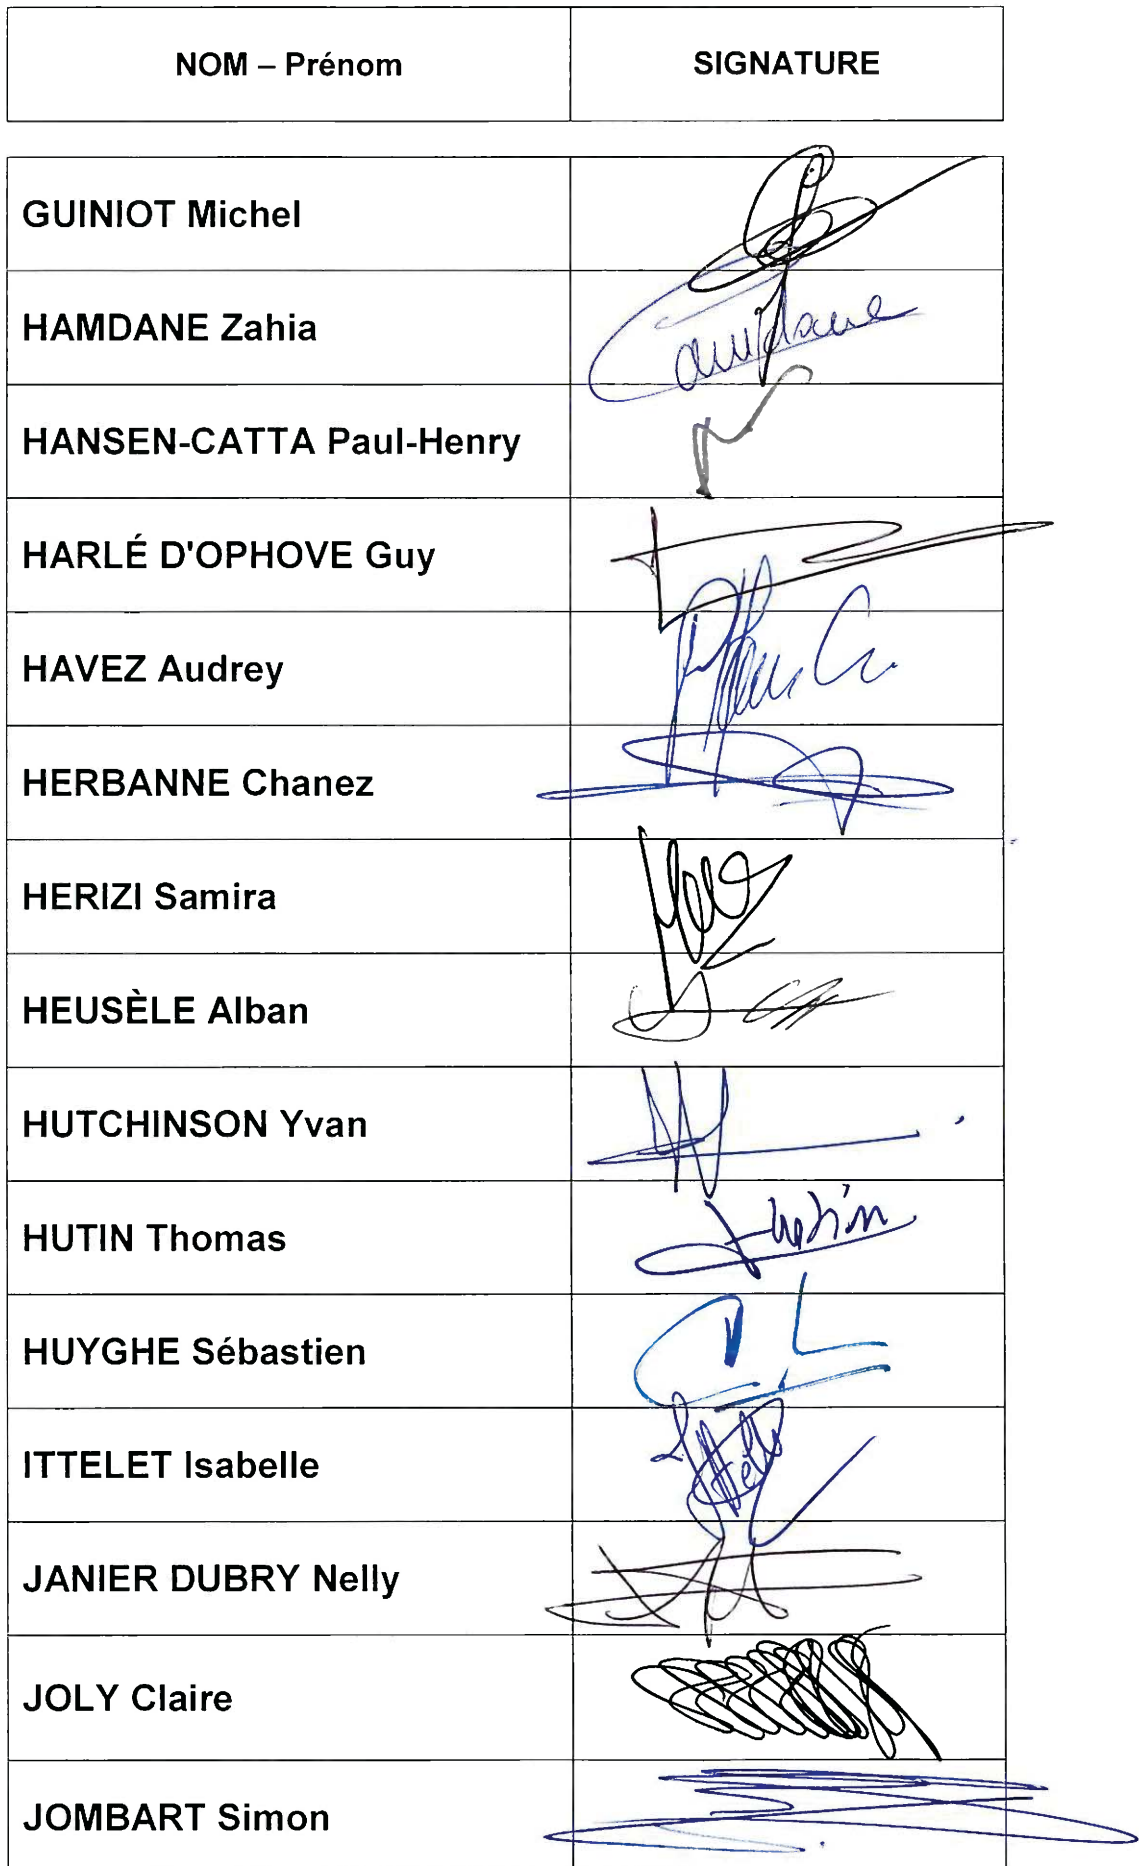 NOM – Prénom SIGNATURE
GUINIOT Michel
HAMDANE Zahia
HANSEN-CATTA Paul-Henry
HARLÉ D'OPHOVE Guy
HAVEZ Audrey
HERBANNE Chanez
HERIZI Samira
HEUSÈLE Alban
HUTCHINSON Yvan
HUTIN Thomas Hutin
HUYGHE Sébastien
ITTELET Isabelle
JANIER DUBRY Nelly
JOLY Claire
JOMBART Simon